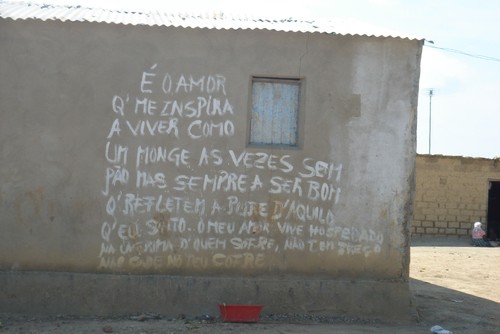 É O AMOR
Q' ME INSPIRA
A VIVER COMO
UM MONGE AS VEZES SEM
PÃO MAS SEMPRE A SER BOM
Q' REFLETEM A D'AQUILO
Q' EU SINTO. O MEU AMOR VIVE HOSPEDADO
NA LÁGRIMA D'QUEM SOFRE, NÃO TEM PREÇO
NÃO CABE NO COFRE